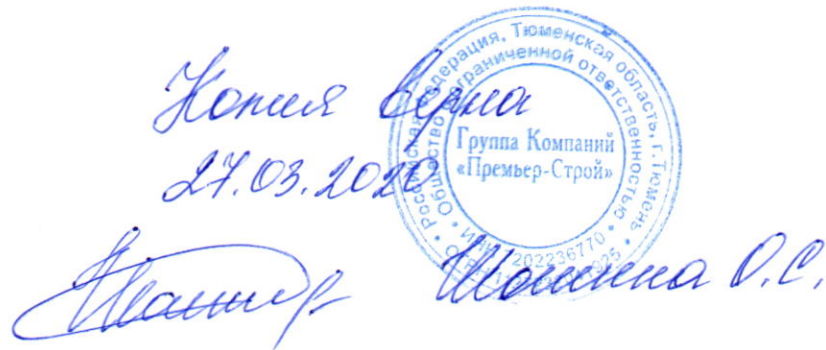 Копия верна
27.03.2020
Российская Федерация, Тюменская область, г. Тюмень
Общество с ограниченной ответственностью
Группа Компаний
«Премьер-Строй»
ИНН
202236770
ОГРН
Шонина О.С.